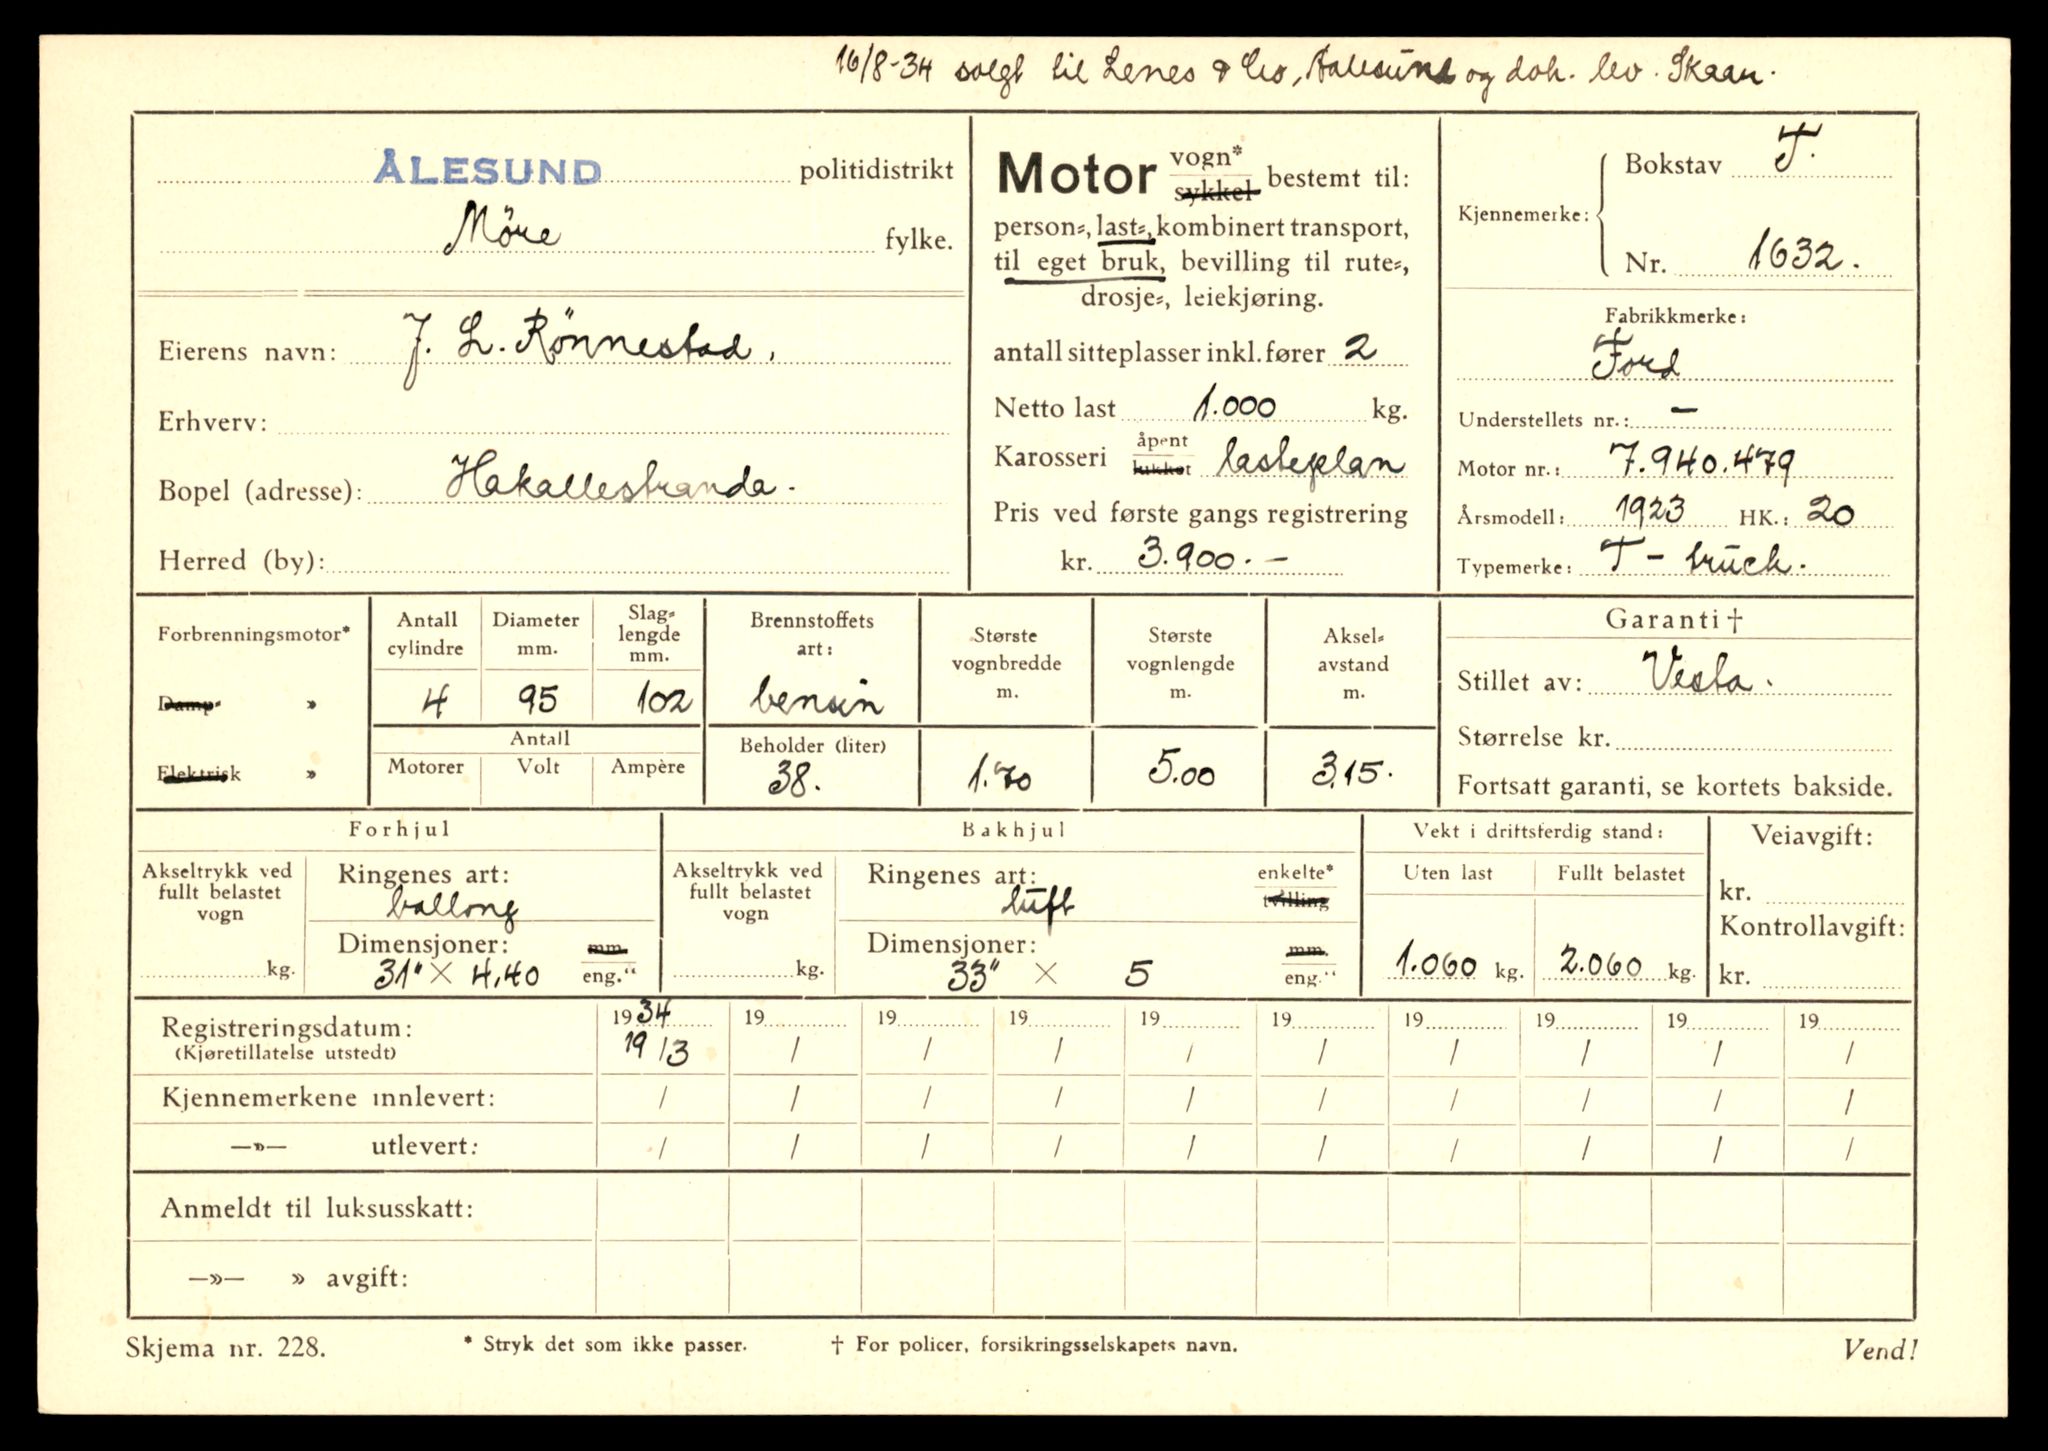 16/8-34 solgt til Lenes & Co, Aalesund og dok. lev. Skaar.
ÅLESUND politidistrikt
Möre fylke.
Eierens navn: J. L. Rönnestad.
Erhverv:
Bopel (adresse): Hakallestranda.
Herred (by):
Motor vogn* sykkel bestemt til:
person-, last-, kombinert transport,
til eget bruk, bevilling til rute-,
drosje-, leiekjøring.
antall sitteplasser inkl. fører 2
Netto last 1.000 kg.
Karosseri åpent lukket lasteplan
Pris ved første gangs registrering
kr. 3.900.-
Kjennemerke: Bokstav T.
Nr. 1632.
Fabrikkmerke:
Ford
Understellets nr.: -
Motor nr.: 7.940.479
Årsmodell: 1923 HK.: 20
Typemerke: T - truck.
Forbrenningsmotor*
Damp- »
Elektrisk »
Antall cylindre
4
Diameter mm.
95
Slag-
lengde
mm.
102
Antall
Motorer Volt Ampère
Brennstoffets
art:
bensin
Beholder (liter)
38.
Største
vognbredde
m.
1.70
Største
vognlengde
m.
5.00
Aksel-
avstand
m.
3.15.
Garanti †
Stillet av: Vesta.
Størrelse kr.
Fortsatt garanti, se kortets bakside.
Forhjul
Akseltrykk ved
fullt belastet
vogn
kg.
Ringenes art:
ballong
Dimensjoner: mm.
31" × 4.40 eng."
Bakhjul
Akseltrykk ved
fullt belastet
vogn
kg.
Ringenes art: enkelte*
luft tvilling
Dimensjoner: mm.
33" × 5 eng."
Vekt i driftsferdig stand:
Uten last Fullt belastet
1.060 kg. 2.060 kg.
Veiavgift:
kr.
Kontrollavgift:
kr.
Registreringsdatum: 1934 19 19 19 19 19 19 19 19 19
(Kjøretillatelse utstedt) 19/3 / / / / / / / / /
Kjennemerkene innlevert: / / / / / / / / / /
—»— utlevert: / / / / / / / / / /
Anmeldt til luksusskatt:
—»— » avgift:
Skjema nr. 228. * Stryk det som ikke passer. † For policer, forsikringsselskapets navn. Vend!